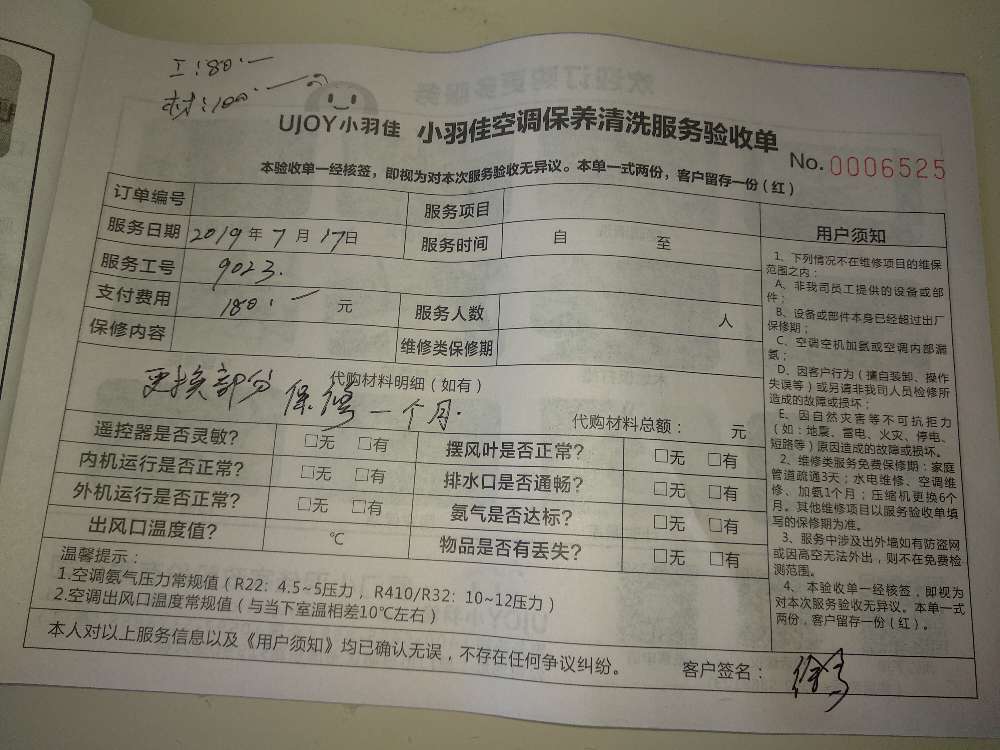 工:80.一
材:100.一
UJOY小羽佳 小羽佳空调保养清洗服务验收单
No.0006525
本验收单一经核签，即视为对本次服务验收无异议。本单一式两份，客户留存一份（红）
订单编号 服务项目
服务日期 2019年7月17日 服务时间 自 至
服务工号 9023.
支付费用 180.一 元 服务人数 人
保修内容 维修类保修期
代购材料明细（如有）
更换部分 保修一个月.
代购材料总额： 元
遥控器是否灵敏？ □无 □有 摆风叶是否正常？ □无 □有
内机运行是否正常？ □无 □有 排水口是否通畅？ □无 □有
外机运行是否正常？ □无 □有 氨气是否达标？ □无 □有
出风口温度值？ ℃ 物品是否有丢失？ □无 □有
温馨提示：
1.空调氨气压力常规值（R22：4.5~5压力，R410/R32：10~12压力）
2.空调出风口温度常规值（与当下室温相差10℃左右）
本人对以上服务信息以及《用户须知》均已确认无误，不存在任何争议纠纷。 客户签名：
用户须知
1、下列情况不在维修项目的维保
范围之内：
A、非我司员工提供的设备或部
件；
B、设备或部件本身已经超过出厂
保修期；
C、空调空机加氨或空调内部漏
氨；
D、因客户行为（擅自装卸、操作
失误等）或另请非我司人员检修所
造成的故障或损坏；
E、因自然灾害等不可抗拒力
（如：地震、雷电、火灾、停电、
短路等）原因造成的故障或损坏。
2、维修类服务免费保修期：家庭
管道疏通3天；水电维修、空调维
修、加氨1个月；压缩机更换6个
月。其他维修项目以服务验收单填
写的保修期为准。
3、服务中涉及出外墙如有防盗网
或因高空无法外出，则不在免费检
测范围。
4、本验收单一经核签，即视为
对本次服务验收无异议。本单一式
两份，客户留存一份（红）。